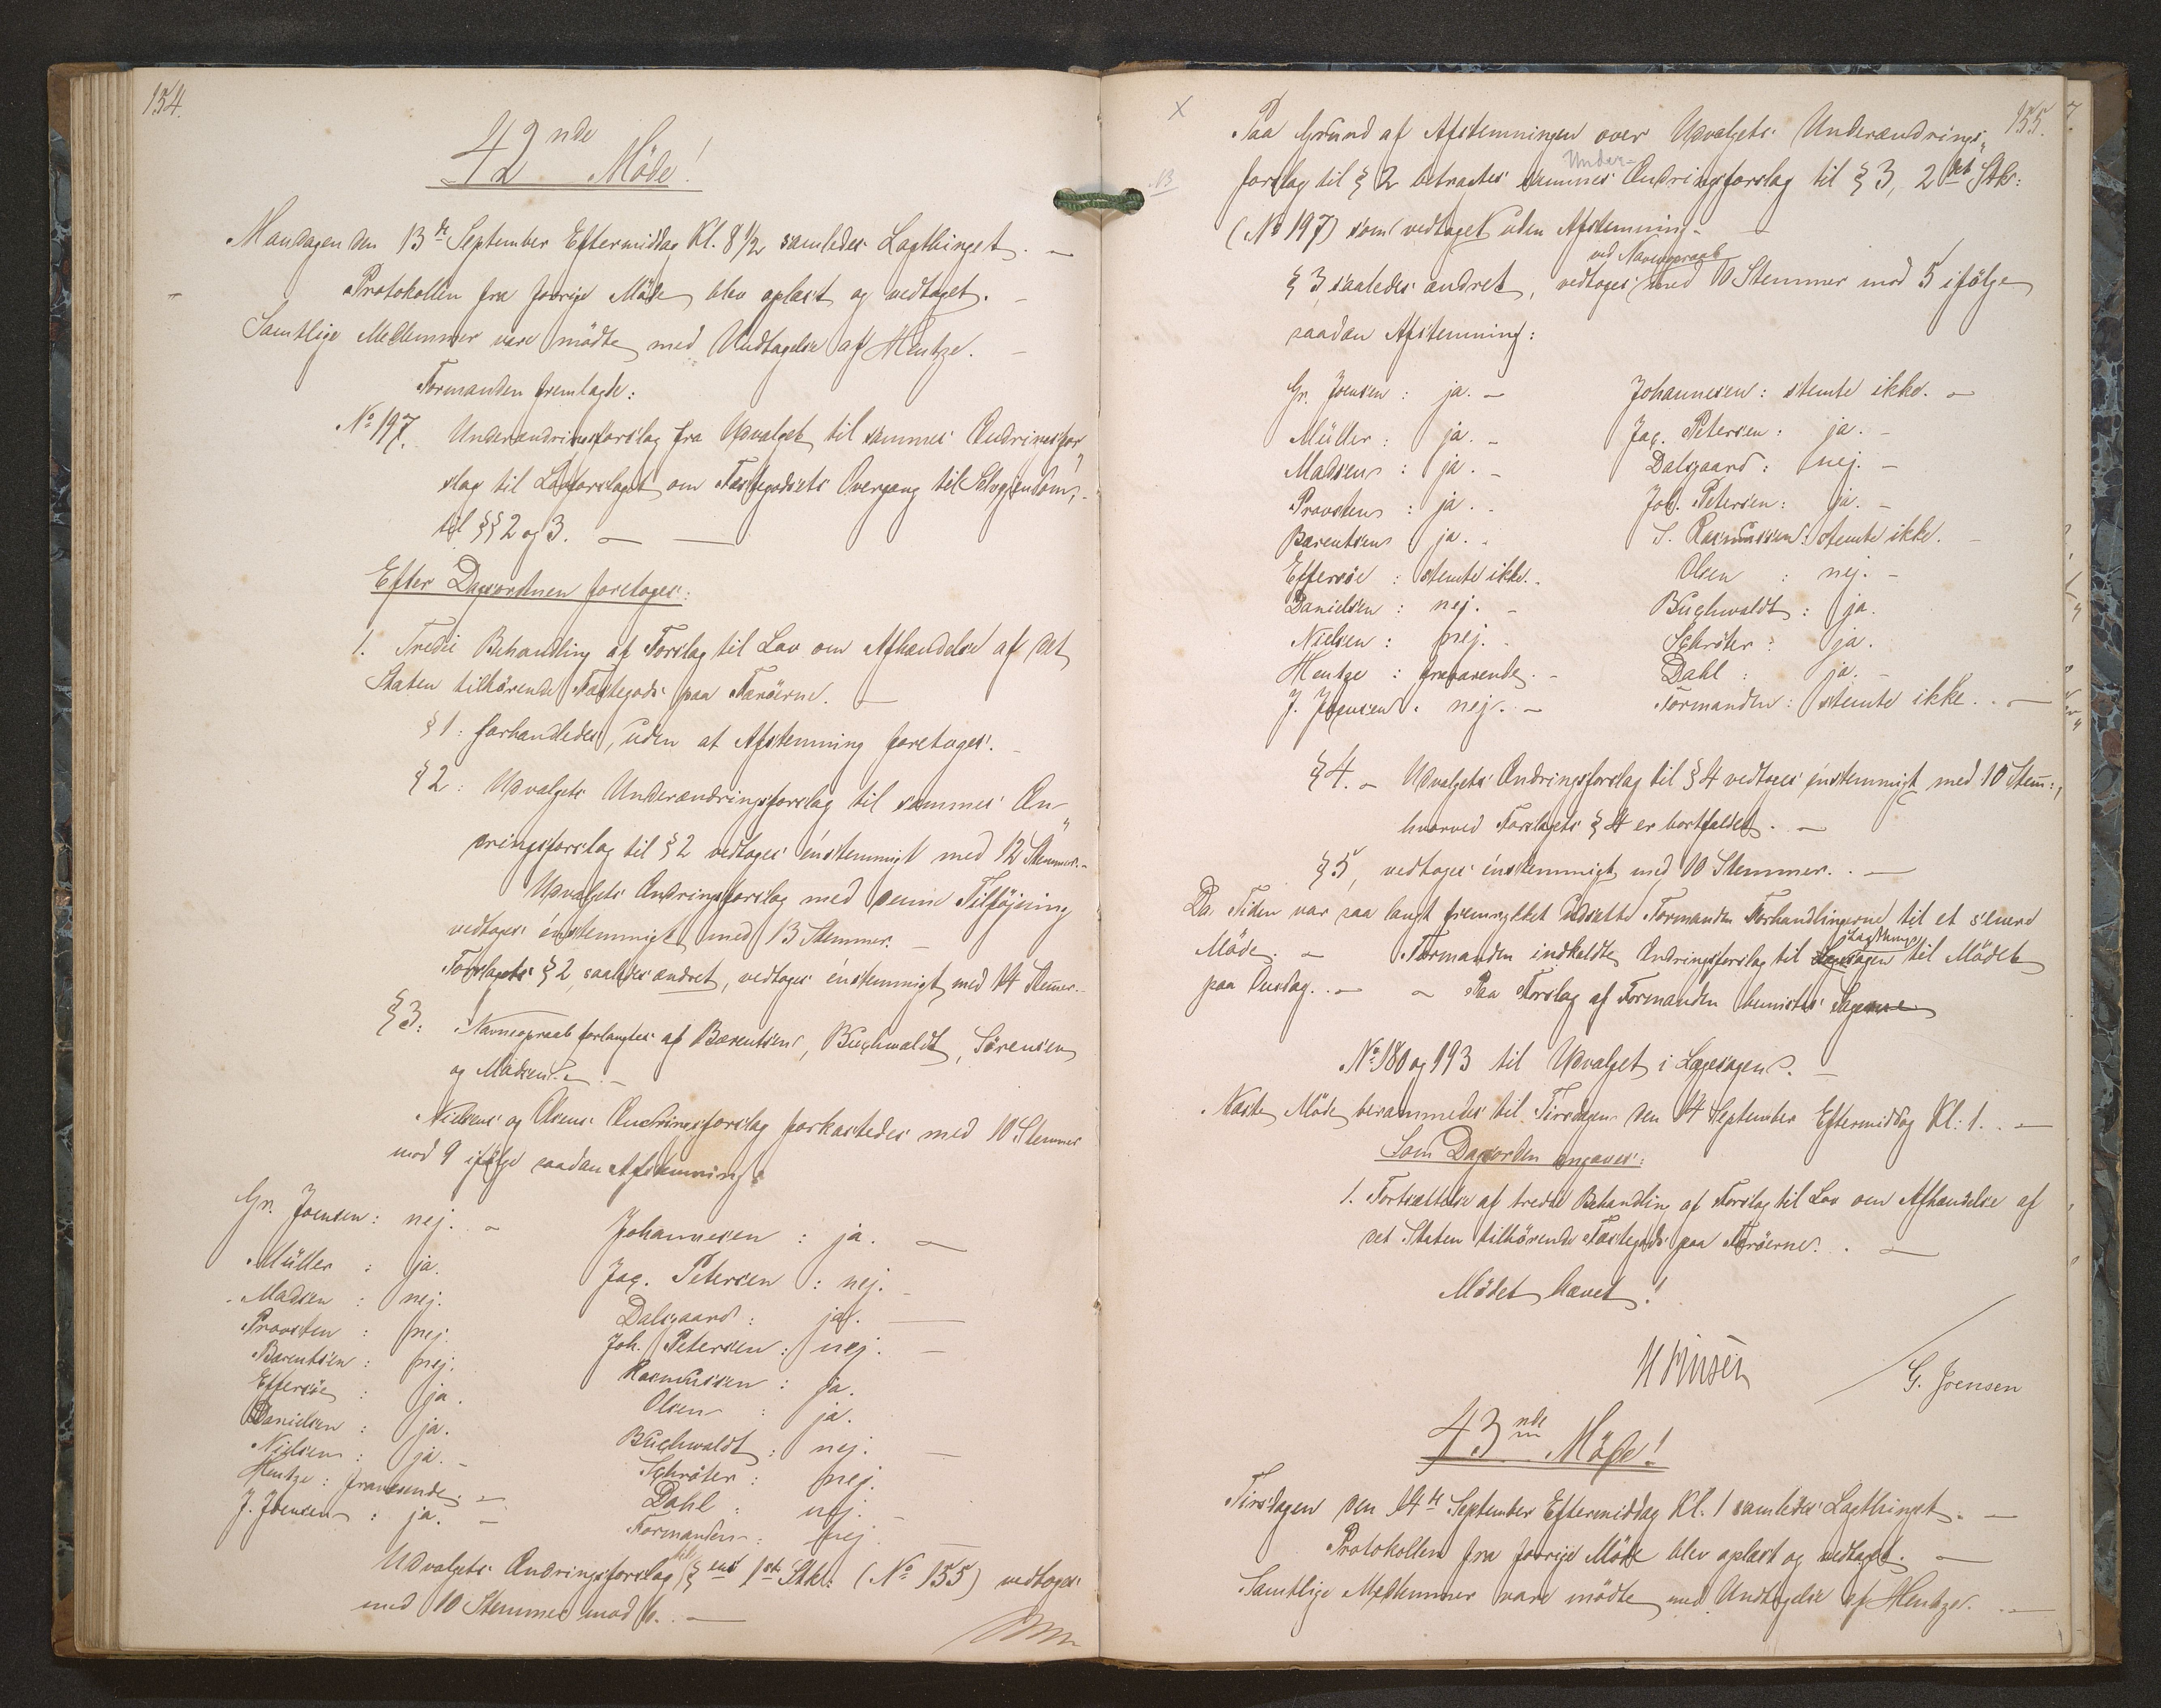 154.
42nde Möde!
Mandagen den 13de September Eftermiddag Kl. 8 1/2 samledes Lagthinget. —
Protokollen fra forrige Möde blev oplæst og vedtaget. —
Samtlige Medlemmer vare mödte med Undtagelse af Hentze. —
Formanden fremlagde:
No 197. Underændringsforslag fra Udvalget til sammes Ændringsfor„
slag til Lovforslaget om Fæstegodsets Overgang til Selvejendom,
til §§ 2 og 3. —
Efter Dagsordenen foretoges:
1. Tredie Behandling af Forslag til Lov om Afhændelse af det
Staten tilhörende Fæstegods paa Færöerne. —
§ 1: forhandledes, uden at Afstemning foretoges. —
§ 2: Udvalgets Underændringsforslag til sammes Æn„
dringsforslag til § 2 vedtoges énstemmigt med 12 Stemmer. —
Udvalgets Ændringsforslag med denne Tilföjening
vedtoges énstemmigt med 13 Stemmer. —
Forslagets § 2, saaledes ændret, vedtoges énstemmigt med 14 Stemer. —
§ 3: Navneopraab forlangtes af Bærentsen, Buchwaldt, Sörensen
og Madsen. —
Nielsens og Olsens Ændringsforslag forkastedes med 10 Stemmer
mod 9 ifölge saadan Afstemning:
Gr. Joensen: nej. — Johannesen: ja. —
Müller: ja. Jaq. Petersen: nej. —
Madsen: nej. Dalsgaard: ja. —
Provsten: nej. Joh. Petersen: nej. —
Bærentsen: nej. Rasmussen: ja.
Effersöe: ja. Olsen: ja.
Danielsen: ja. Buchwaldt: nej. —
Nielsen: ja. — Schröter: nej.
Hentze: fraværende. — Dahl: nej. —
J. Joensen: ja. — Formanden: nej. —
Udvalgets Ændringsforslag til § ens 1ste Stk: (No 155) vedtoges
med 10 Stemmer mod 6. —
155.
Paa Grund af Afstemningen over Udvalgets Underændrings„
forslag til § 2 betragtes sammes Under- Ændringsforslag til § 3, 2det Stk:
(No 197) som vedtaget uden Afstemning. —
§ 3 saaledes ændret, vedtoges ved Navneopraab med 10 Stemmer mod 5 ifölge
saadan Afstemning:
Gr. Joensen: ja. — Johannesen: stemte ikke. —
Müller: ja. — Jaq. Petersen: ja. —
Madsen: ja. — Dalsgaard: nej. —
Provsten: ja. — Joh. Petersen: ja. —
Bærentsen ja. — S. Rasmussen: stemte ikke. —
Effersöe: stemte ikke. — Olsen: nej. —
Danielsen: nej. — Buchwaldt: ja.
Nielsen: nej. — Schröter: ja.
Hentze: fraværende. — Dahl: ja. —
J. Joensen: nej. — Formanden: stemte ikke. —
§ 4. — Udvalgets Ændringsforslag til § 4 vedtoges énstemmigt med 10 Stem:,
hvorved Forslagets § 4 er bortfaldet. —
§ 5, vedtoges énstemmigt med 10 Stemmer. —
Da Tiden var saa langt fremrykket udsatte Formanden Forhandlingerne til et senere
Möde. — Formanden indkaldte Ændringsforslag til Lagthings til Mödet
paa Onsdag. — — Paa Forslag af Formanden henvistes Sagerne
No 180 og 193 til Udvalget i Lægesagen. —
Næste Möde berammedes til Tirsdagen den 14 September Eftermiddag Kl: 1. —
Som Dagsorden angaves:
1. Fortsættelse af tredie Behandling af Forslag til Lov om Afhændelse af
det Staten tilhörende Fæstegods paa Færöerne. —
Mödet hævet!
G. Joensen
43nde Möde!
Tirsdagen den 14de September Eftermiddag Kl. 1 samledes Lagthinget. —
Protokollen fra forrige Möde blev oplæst og vedtaget. —
Samtlige Medlemmer vare mödte med Undtagelse af Hentze. —